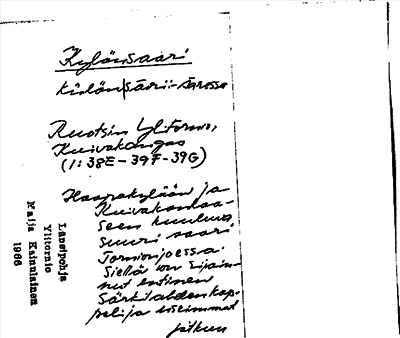 Kylänsaari
Ruotsin Ylitornio,
Kuivakangas
(1:38E-39F-39G)
Haapakylään ja
Kuivakankaa-
seen kuuluva
suuri saari
Tornionjoessa.
Siellä on sijain-
nut entinen
Särkilahden kap-
peli ja useimmat
jatkuu
Länsipohja
Ylitornio
Maija Kainulainen
1966